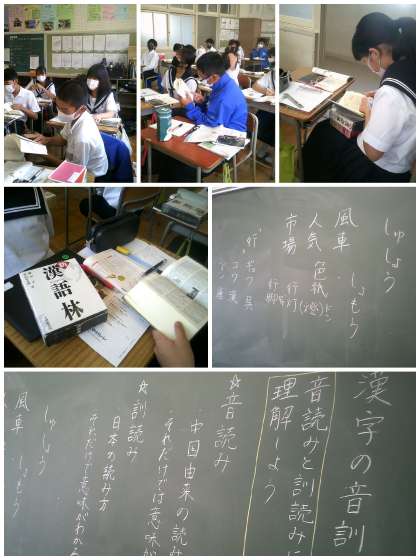 漢語林
しゅしょう
しょもう
風車
人気 色紙
市場 行灯
行脚
行
コウ 漢
アン
漢字の音訓
音読みと訓読みに
理解しよう
☆音読み
・中国由来の読み
・それだけでは意味が
☆訓読み
日本の読み方
それだけで意味がわかる
しゅしょう
風車 しょもう